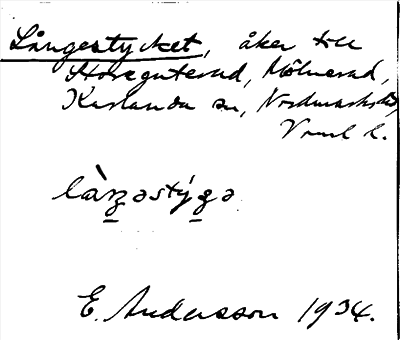 Långestycket, åker till
Högutserud, Mölnerud,
Karlanda sn, Nordmarks hd,
Vrml l.
làŋəstýgə
E. Andersson 1934.